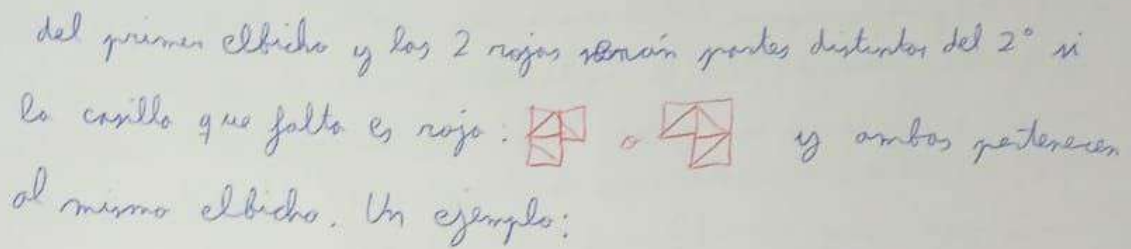 del primer elbicho y las 2 rojas serán partes distintas del 2° si
la casilla que falta es roja: o y ambas pertenecen
al mismo elbicho. Un ejemplo: